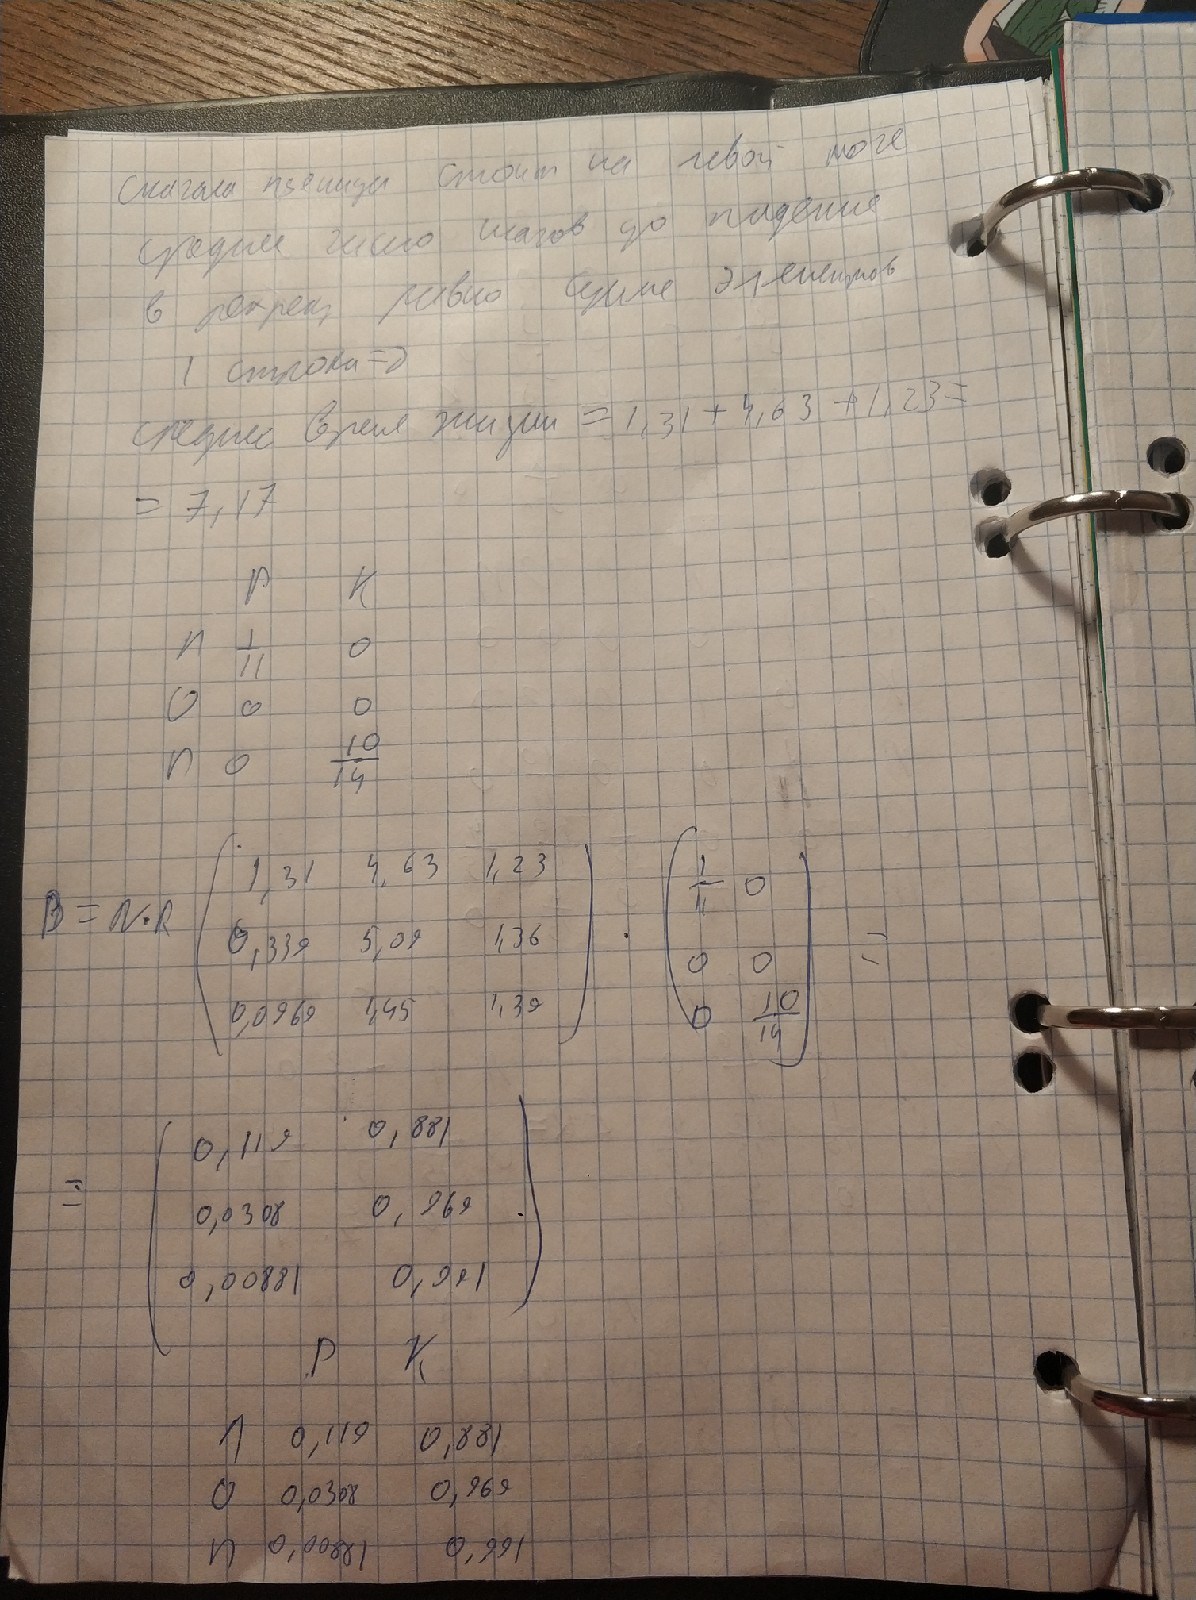 сначала пьяница стоит на левой ноге
среднее число шагов до падения
в равно сумме элементов
1 строки =>
среднее время жизни = 1,31 + 4,63 + 1,23 =
= 7,17
Р К
Л 1/11 0
О 0 0
П 0 10/14
B = N·R ( 1,31 4,63 1,23 ) · ( 1/11 0 ) =
0,339 5,09 1,36 0 0
0,0969 1,45 1,39 0 10/14
= ( 0,119 0,881 )
0,0308 0,969
0,00881 0,991
Р К
Л 0,119 0,881
О 0,0308 0,969
П 0,00881 0,991